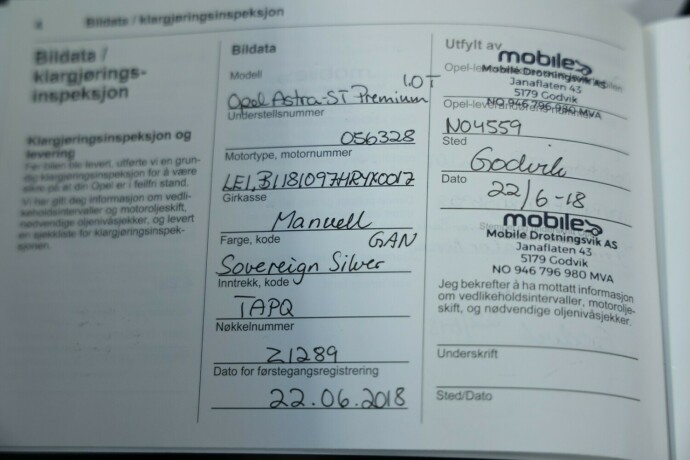 Bildata / klargjøringsinspeksjon
Bildata /
klargjørings-
inspeksjon
Klargjøringsinspeksjon og
levering
Før bilen ble levert, utførte vi en grun-
dig klargjøringsinspeksjon for å være
sikre på at din Opel er i feilfri stand.
Vi har gitt deg informasjon om vedli-
keholdsintervaller og motoroljeskift,
nødvendige oljenivåsjekker, og levert
en sjekkliste for klargjøringsinspek-
sjonen.
Bildata
Modell
1.0 T
Opel Astra-ST Premium
Understellsnummer
056328
Motortype, motornummer
Girkasse
Manuell
Farge, kode
GAN
Sovereign Silver
Inntrekk, kode
TAPQ
Nøkkelnummer
Z1289
Dato for førstegangsregistrering
22.06.2018
Utfylt av
mobile
Mobile Drotningsvik AS
Janaflaten 43
5179 Godvik
NO 946 796 980 MVA
NO4559
Sted
Godvik
Dato
22/6-18
mobile
Mobile Drotningsvik AS
Janaflaten 43
5179 Godvik
NO 946 796 980 MVA
Jeg bekrefter å ha mottatt informasjon
om vedlikeholdsintervaller, motorolje-
skift, og nødvendige oljenivåsjekker.
Underskrift
Sted/Dato